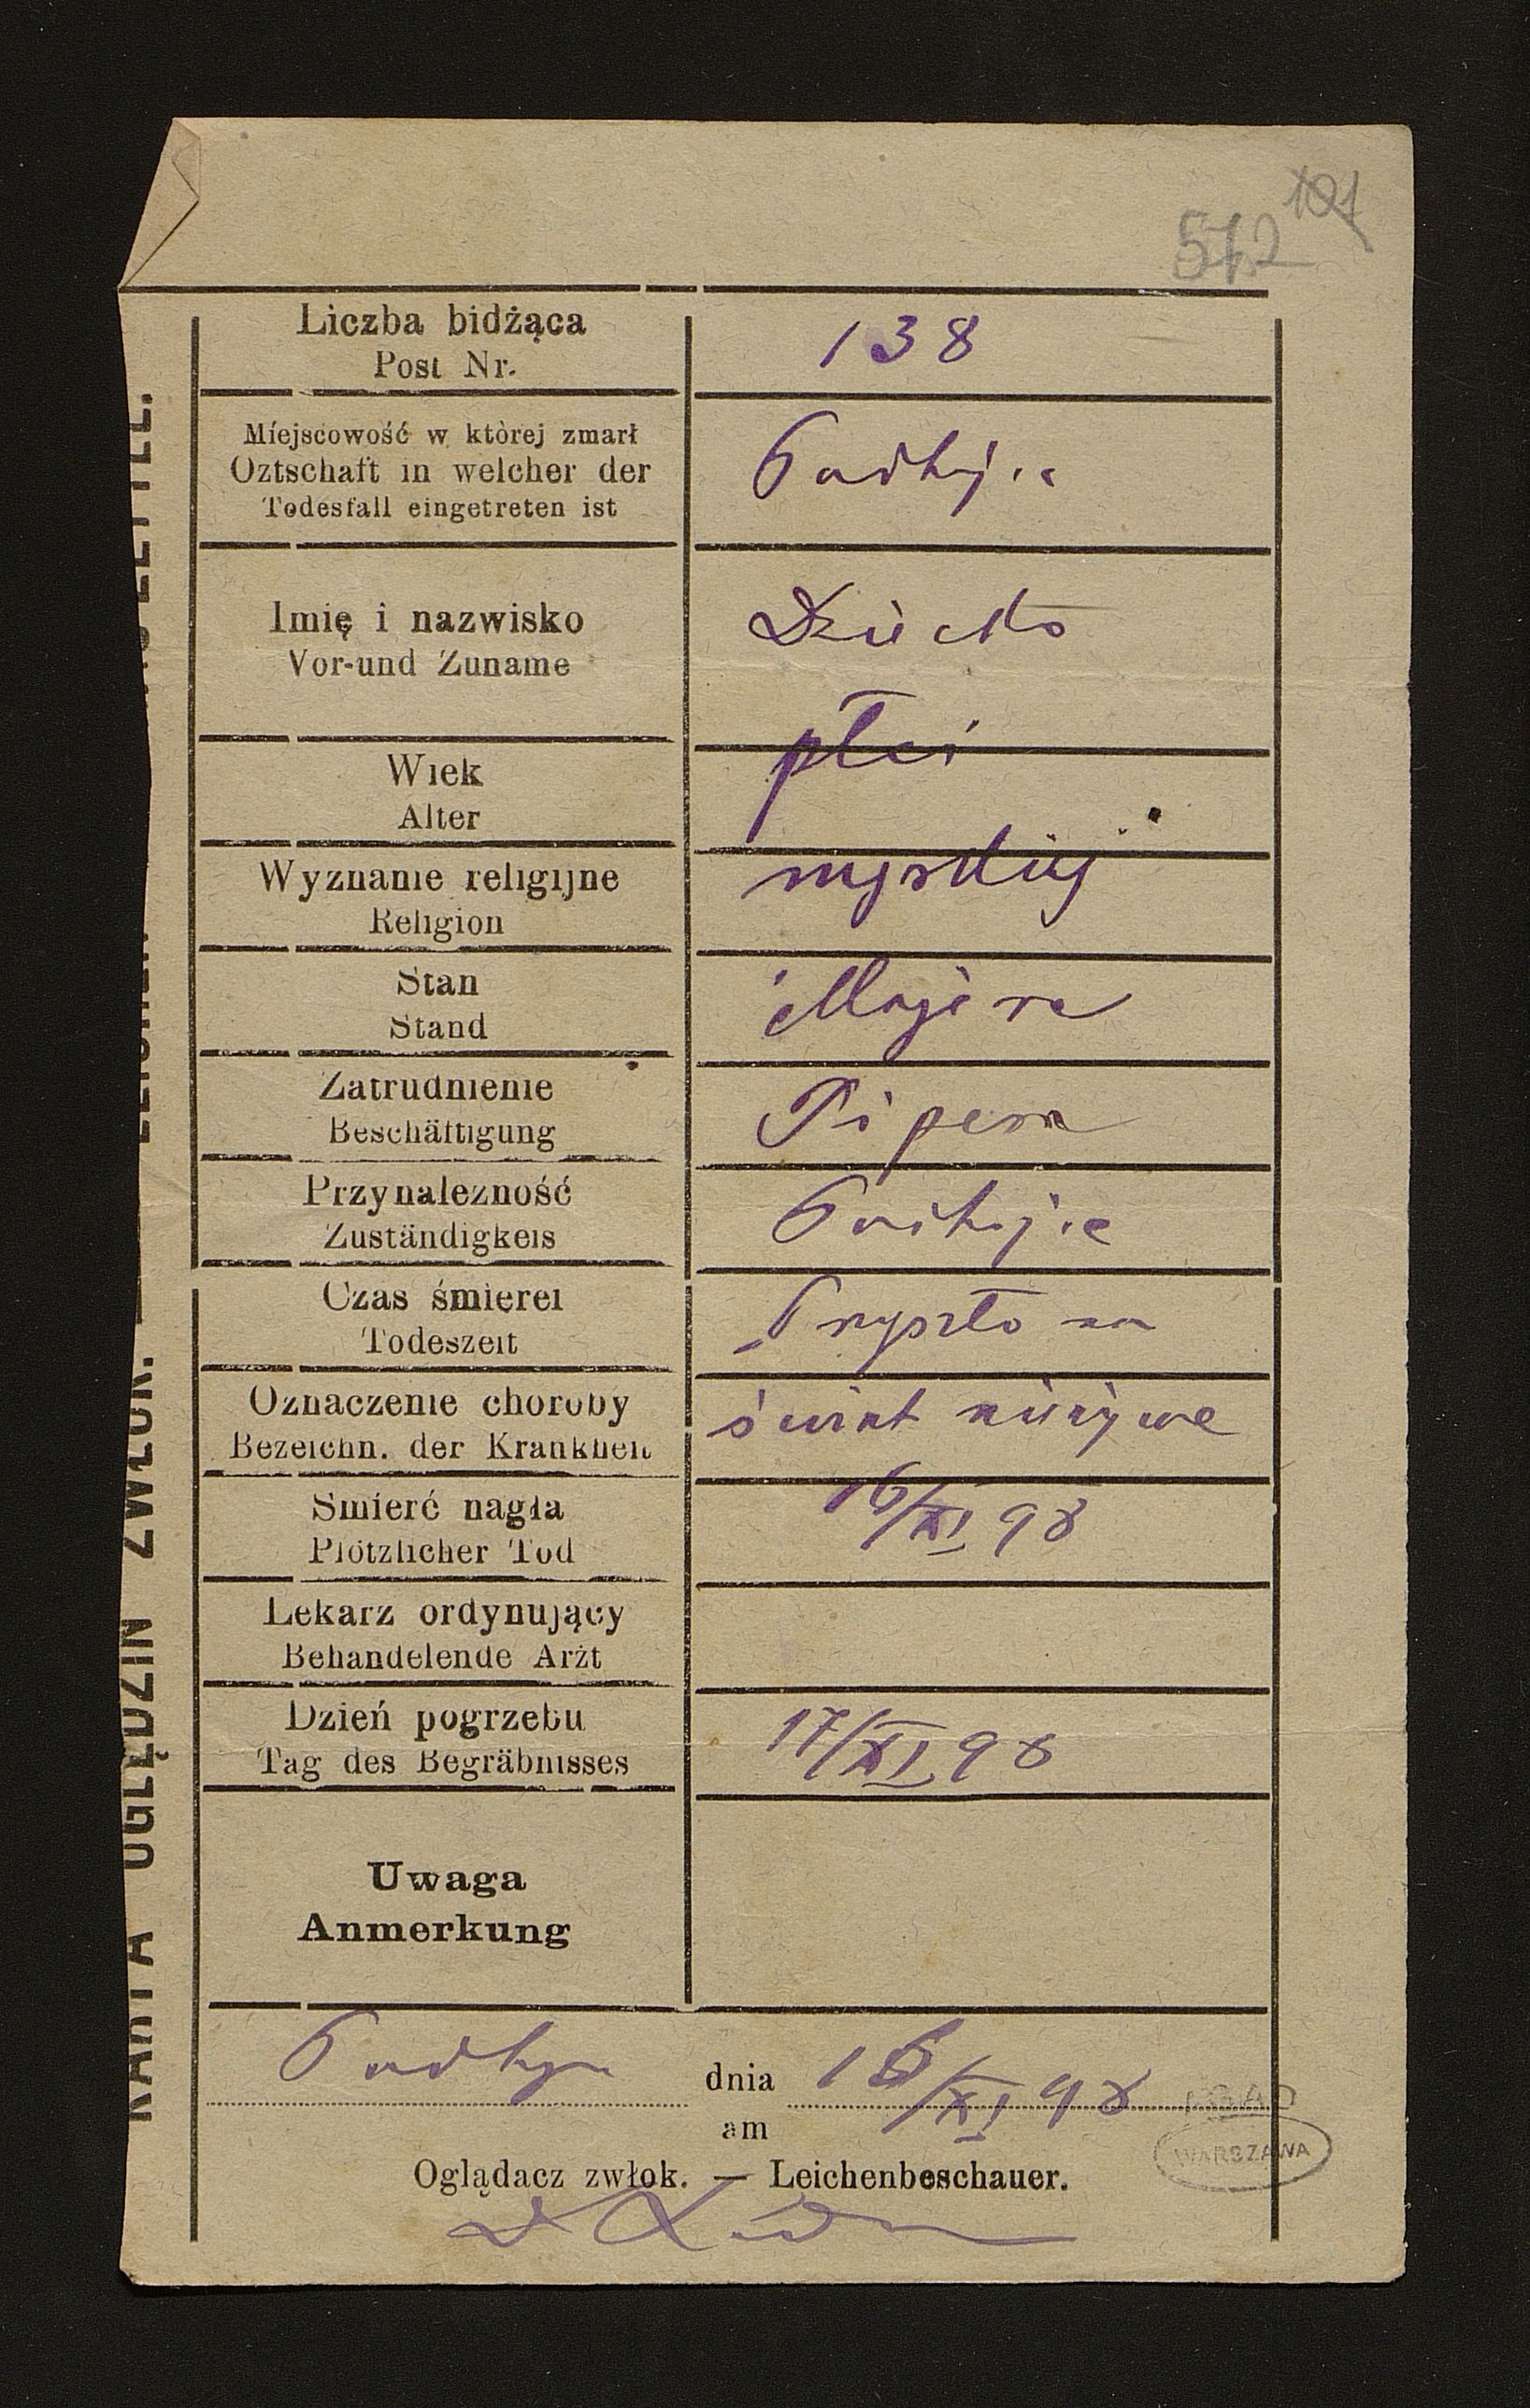 572 101
Liczba bidżąca
Post Nr.
138
Miejscowość w której zmarł
Oztschaft in welcher der
Todesfall eingetreten ist
Podhajce
Imię i nazwisko
Vor-und Zuname
Dziecko
płci
Wiek
Alter
Wyznanie religijne
Religion
męskiej
Stan
Stand
Majera
Zatrudnienie
Beschäftigung
Pipera
Przynalezność
Zuständigkeis
Podhajce
Czas śmierei
Todeszeit
Przyszło na
Oznaczenie choroby
Bezeichn. der Krankheit
świat nieżywe
Smierć nagła
Plötzlicher Tod
16/XI 98
Lekarz ordynujący
Behandelende Arzt
Dzień pogrzebu
Tag des Begräbnisses
17/XI 98
Uwaga
Anmerkung
Podhajce dnia 16/XI 98
am
Oglądacz zwłok. — Leichenbeschauer.
KARTA OGLĘDZIN ZWŁOK.
AGAD
WARSZAWA